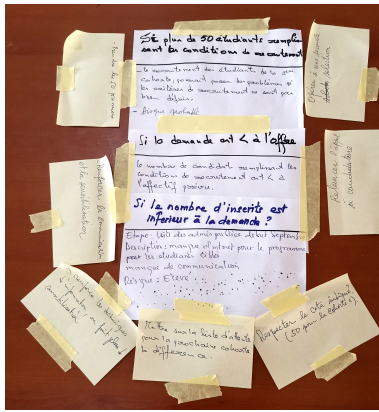 Si plus de 50 étudiants remplis
sent les conditions de recrutement
- le recrutement des étudiants de la 2ème
cohorte, pourrait poser des problèmes si
les critères de recrutement ne sont pas
bien définis.
- Risque probable
Si la demande est < à l'offre
le nombre de candidat remplissant les
conditions de recrutement est < à
l'effectif prévu.
Si le nombre d'inscrits est
inférieur à la demande ?
Etape : liste des admis publiée début septembre
Description : manque d'intérêt pour le programme
par les étudiants cibles
manque de communication
Risque : Elevé
des 50
Relancer l'appel
à candidature
Renforcer la communication
et la sensibilisation
Mettre sur la liste d'attente
pour la prochaine cohorte
la différence.
Respecter le quota
(50 pour la cohorte)